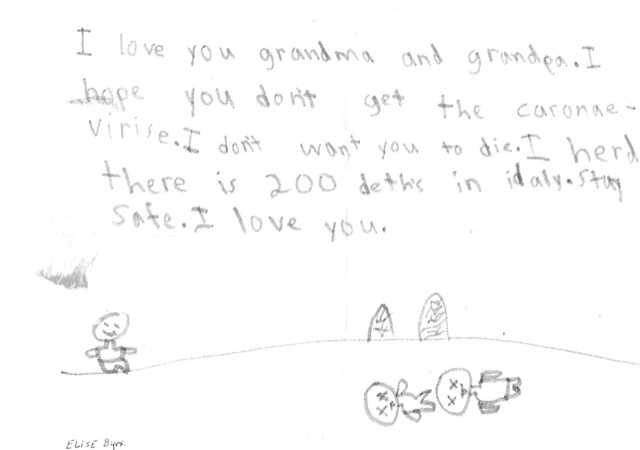 I love you grandma and grandpa.I
hope you don't get the caronae-
virise.I don't want you to die.I herd
there is 200 deths in idaly.Stay
safe.I love you.
ELISE 8yrs.